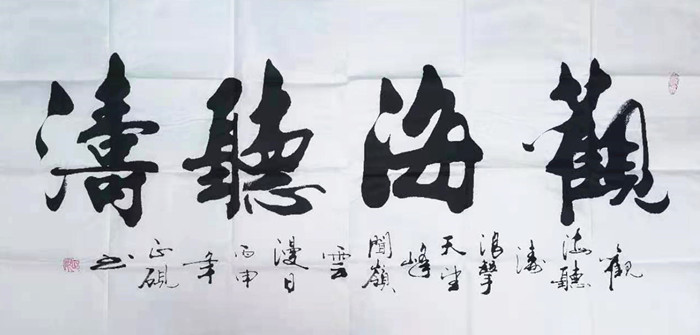 觀海聽濤
觀
海聽
濤
浪擊
天
峰
間嶺
雲
漫日
丙申
年
正硯
书